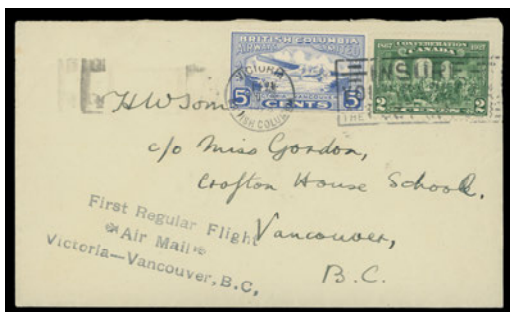 BRITISH COLUMBIA
AIRWAYS LIMITED
5 CENTS 5
1867 CONFEDERATION 1927
CANADA
2 2
VICTORIA
INSURE
THE
H W Tom
c/o Miss Gordon,
Crofton House School.
Vancouver,
B.C.
First Regular Flight
Air Mail
Victoria—Vancouver, B.C.